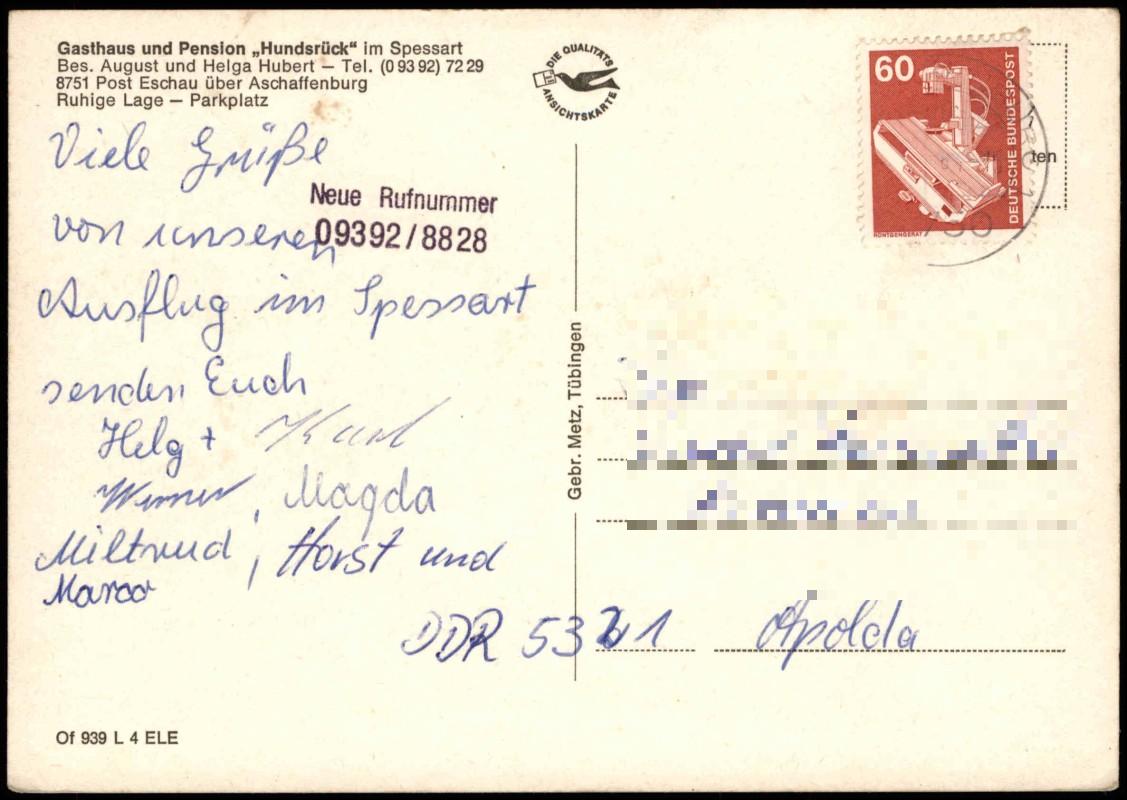 Gasthaus und Pension „Hundsrück“ im Spessart
Bes. August und Helga Hubert — Tel. (0 93 92) 72 29
8751 Post Eschau über Aschaffenburg
Ruhige Lage — Parkplatz
DIE QUALITÄTS
ANSICHTSKARTE
Viele Grüße
Neue Rufnummer
09392/8828
von unseren
Ausflug im Spessart
senden Euch
Helg + Karl
Werner, Magda
Miltrud, Horst und
Marco
Gebr. Metz, Tübingen
60
DEUTSCHE BUNDESPOST
RÖNTGENGERÄT
ten
DDR 5321 Apolda
Of 939 L 4 ELE